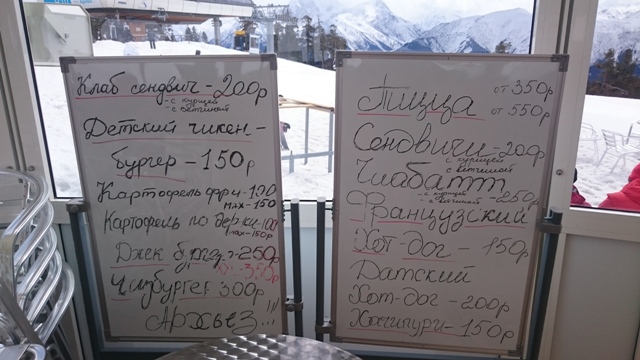 Клаб сендвич - 200р
- с курицей
- с ветчиной
Детский чикен -
бургер - 150р
Картофель фри - 100
мах - 150
Картофель по дер-ки - 100
мах - 150р
Джек бургер - 250р
350р
Чизбургер 300р
Архыез !!!
Пицца от 350р
от 550р
Сендвичи - 200р
с курицей
с ветчиной
Чиабатт - 250р
с курицей
с ветчиной
Французский
Хот-дог - 150р
Датский
Хот-дог - 200р
Хачипури - 150р